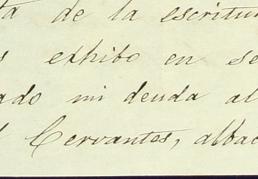 de la escritu
exhibo en se
ado mi deuda al
Cervantes, albac